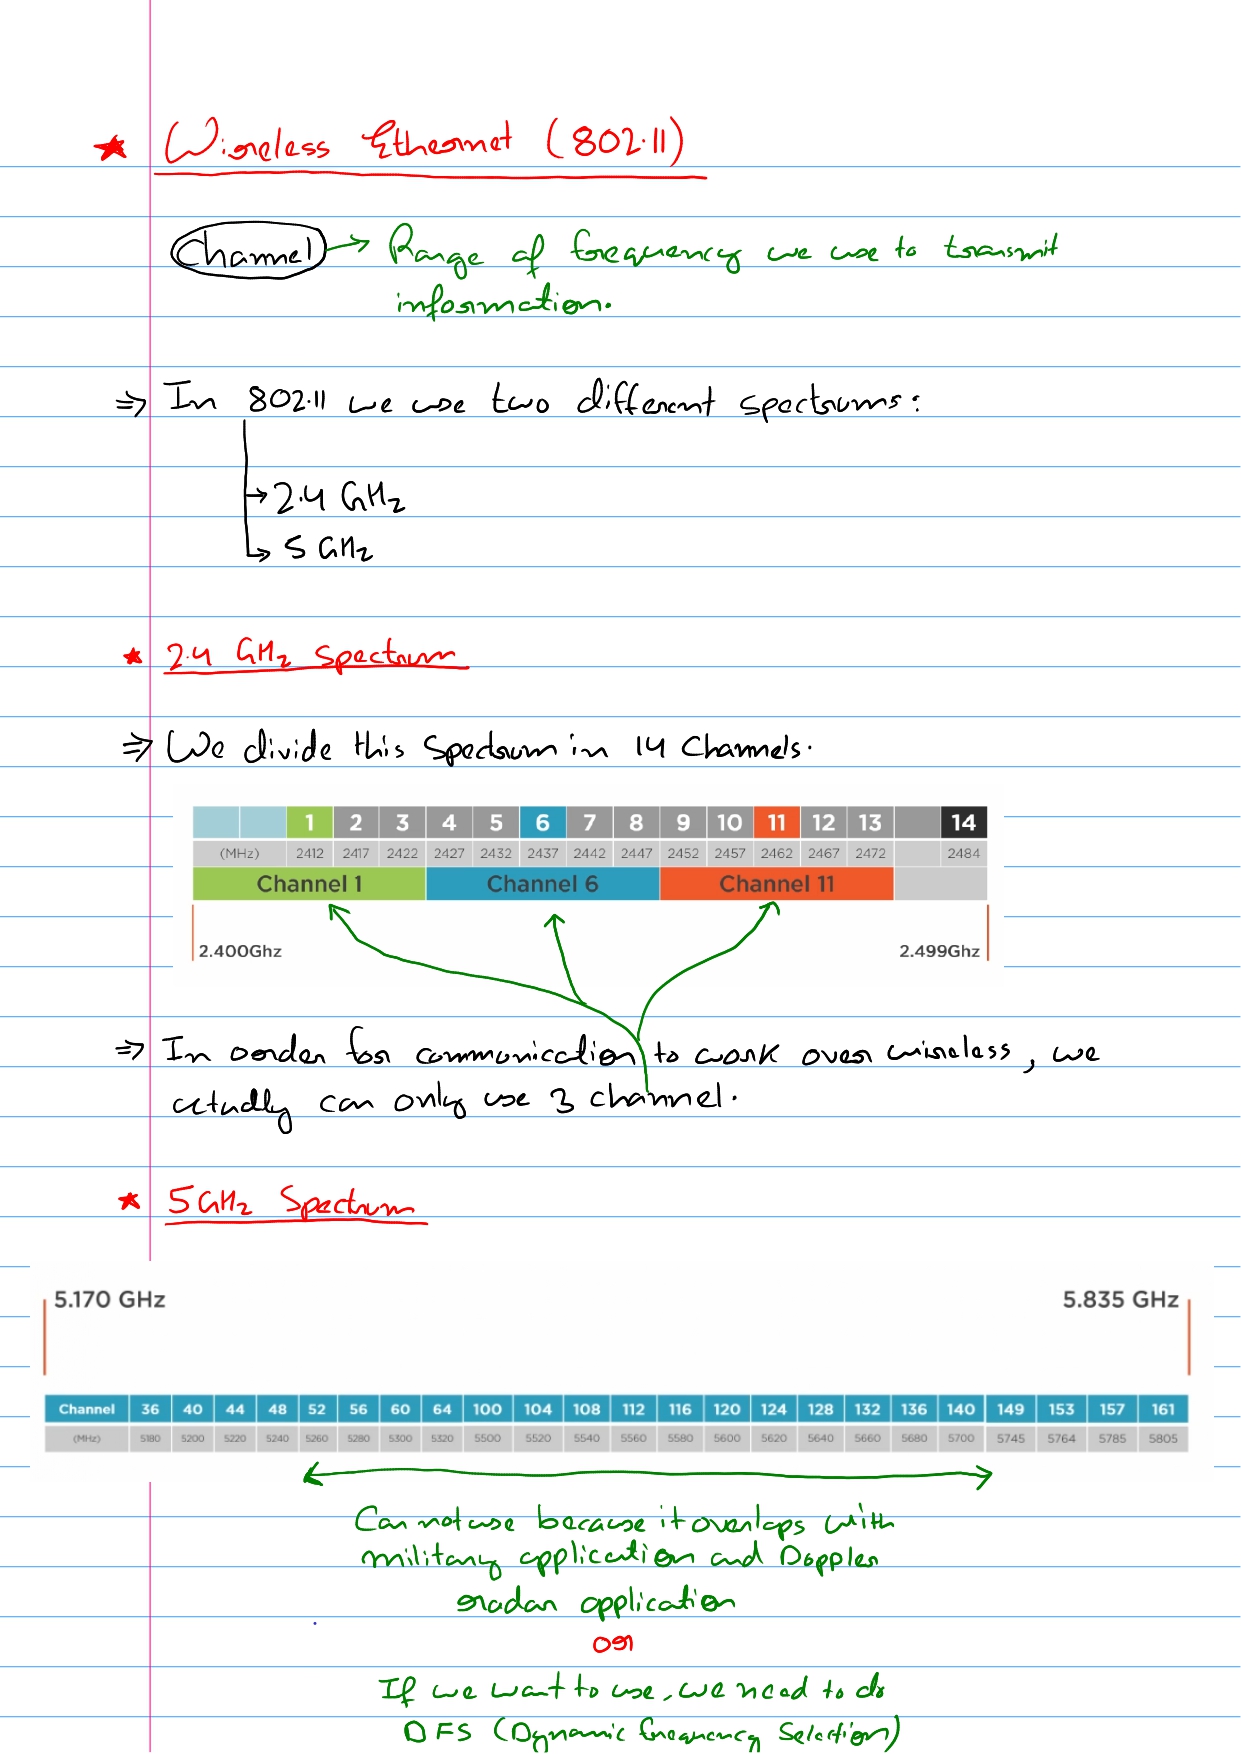 ★ Wireless Ethernet (802.11)
Channel → Range of frequency we use to transmit
information.
⇒ In 802.11 we use two different spectrums:
→ 2.4 GHz
→ 5 GHz
★ 2.4 GHz Spectrum
⇒ We divide this Spectrum in 14 Channels.
1 2 3 4 5 6 7 8 9 10 11 12 13 14
(MHz) 2412 2417 2422 2427 2432 2437 2442 2447 2452 2457 2462 2467 2472 2484
Channel 1 Channel 6 Channel 11
2.400Ghz 2.499Ghz
⇒ In order for communication to work over wireless, we
actually can only use 3 channel.
★ 5 GHz Spectrum
5.170 GHz 5.835 GHz
Channel 36 40 44 48 52 56 60 64 100 104 108 112 116 120 124 128 132 136 140 149 153 157 161
(MHz) 5180 5200 5220 5240 5260 5280 5300 5320 5500 5520 5540 5560 5580 5600 5620 5640 5660 5680 5700 5745 5764 5785 5805
Can not use because it overlaps with
military application and Doppler
radar application
or
If we want to use, we need to do
DFS (Dynamic frequency Selection)